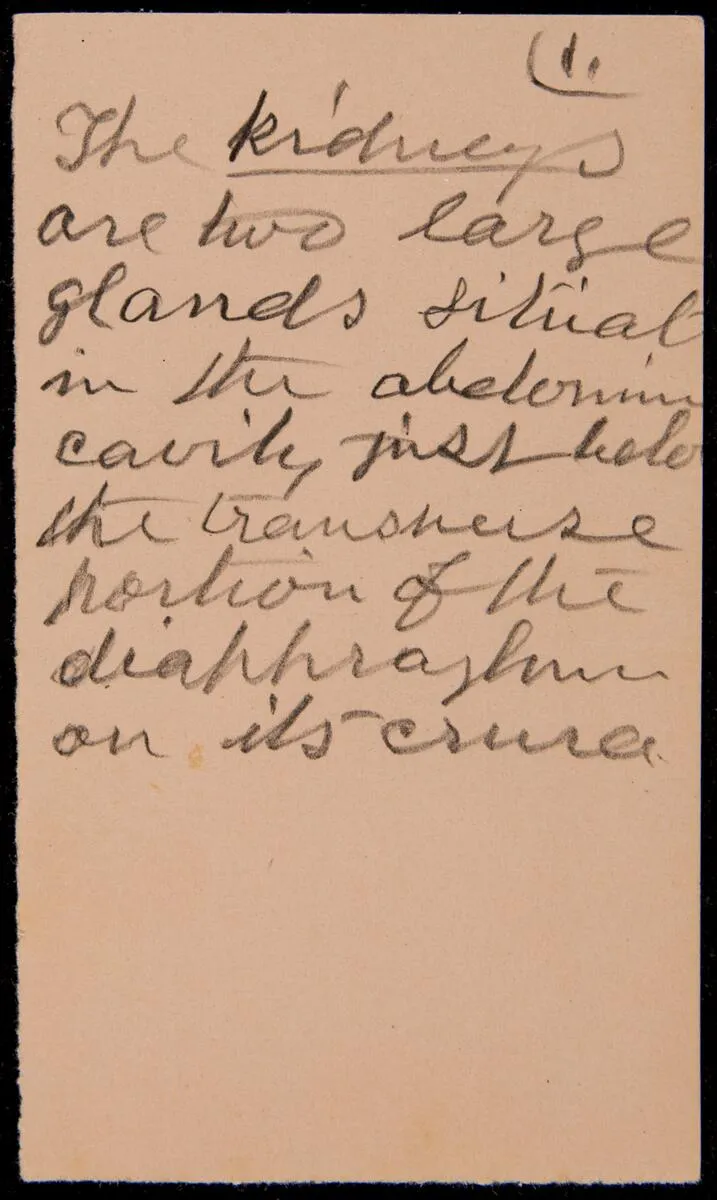 (1.
The kidneys
are two large
glands situat
in the abdomin
cavity just belo
the transverse
portion of the
diaphraghm
on its crura